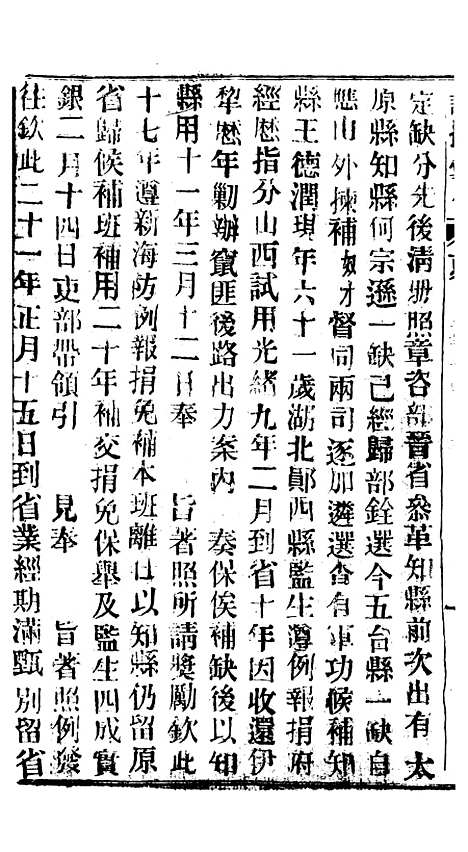 定缺分先後清册照章咨部晉省叅革知縣前次出有太
原縣知縣何宗遜一缺已經歸部銓選今五台縣一缺自
應由外揀補奴才督同兩司逐加遴選查有軍功候補知
縣王德潤現年六十一歲湖北鄖西縣監生遵例報捐府
經歷指分山西試用光緒九年二月到省十年因收還伊
犂歷年勦辦竄匪後路出力案內 奏保俟補缺後以知
縣用十一年三月十二日奉 旨著照所請獎勵欽此
十七年遵新海防例報捐免補本班離任以知縣仍留原
省歸候補班補用二十年補交捐免保舉及監生四成實
銀二月十四日吏部帶領引 見奉 旨著照例發
往欽此二十一年正月十五日到省業經期滿甄別留省